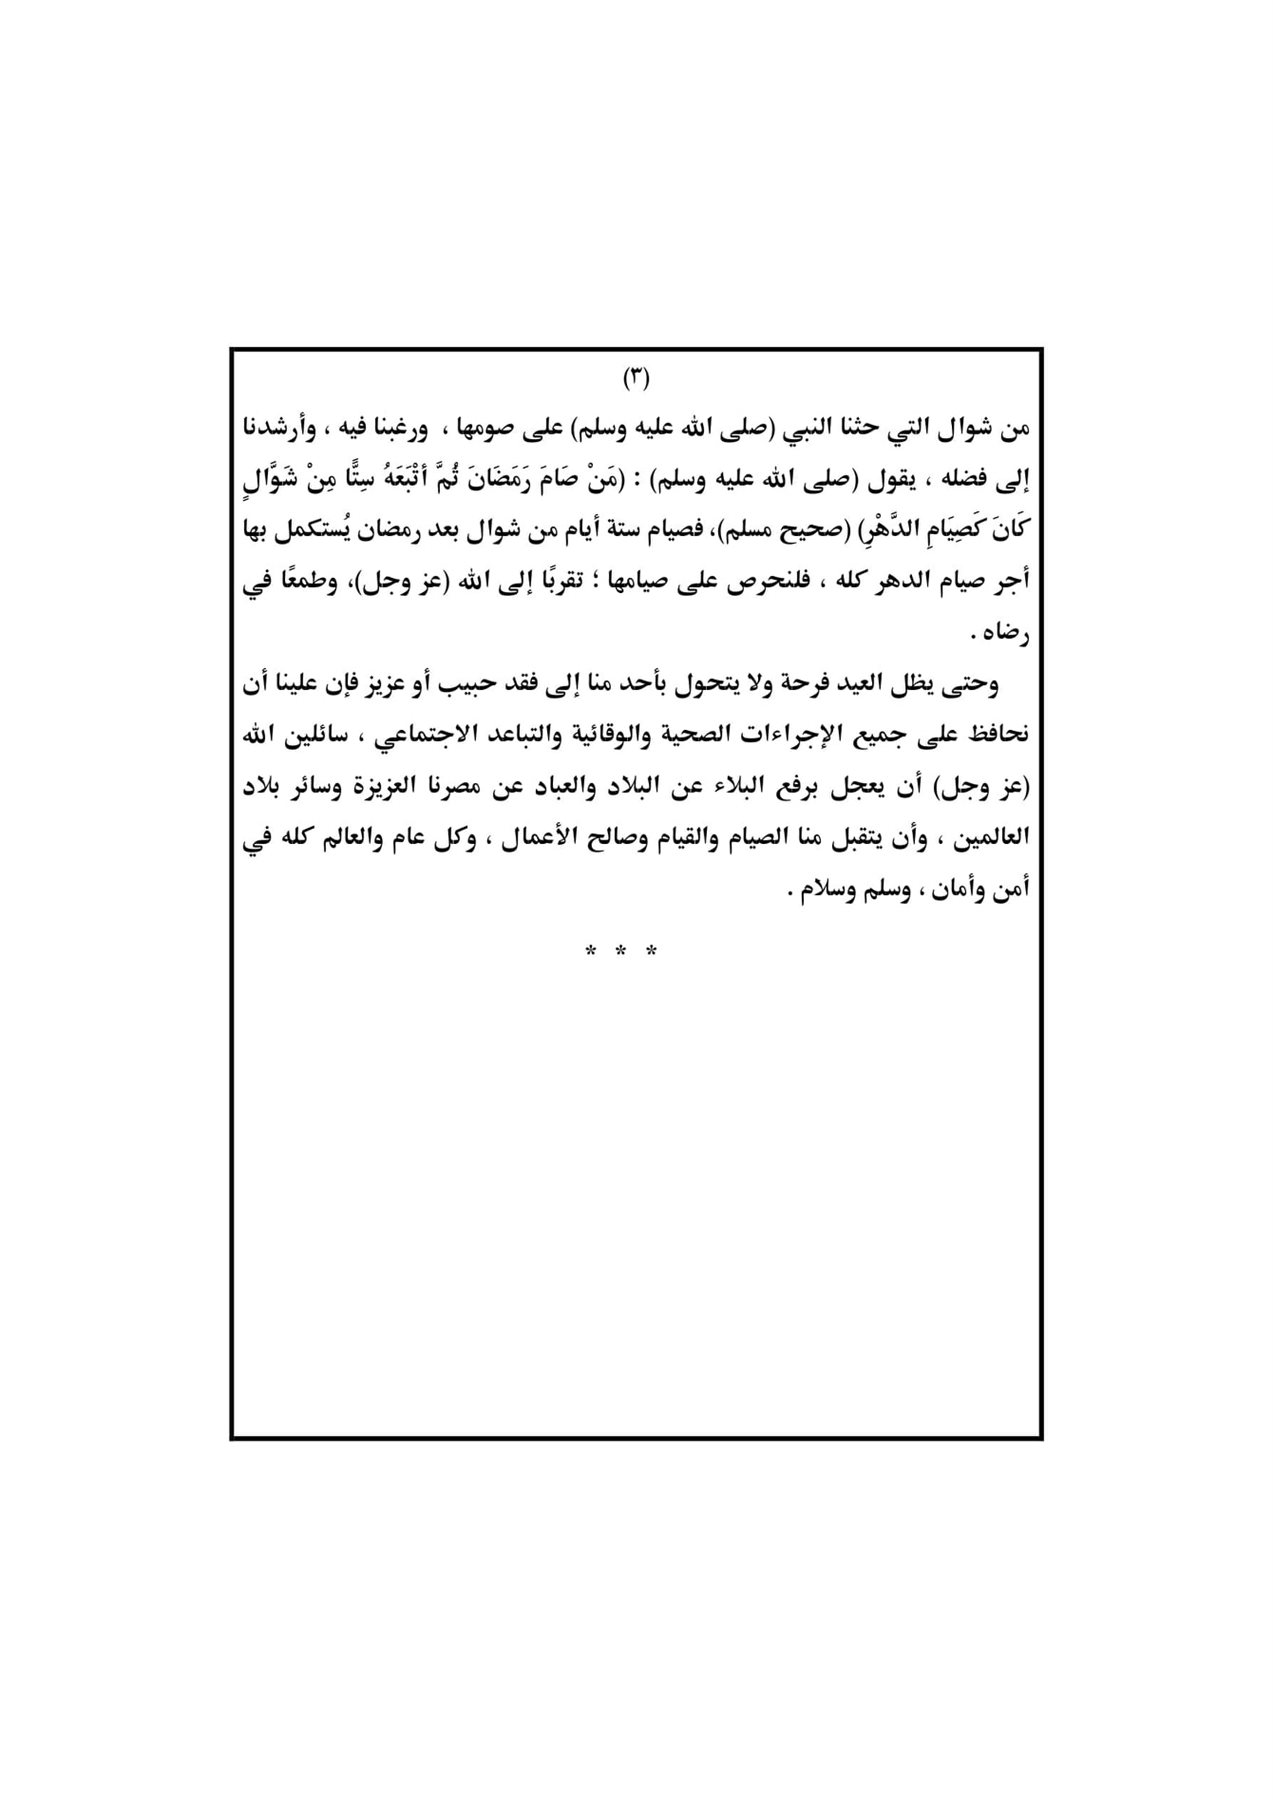 (٣)
من شوال التي حثنا النبي (صلى الله عليه وسلم) على صومها ، ورغبنا فيه ، وأرشدنا
إلى فضله ، يقول (صلى الله عليه وسلم) : (مَنْ صَامَ رَمَضَانَ ثُمَّ أتْبَعَهُ سِتًّا مِنْ شَوَّالٍ
كَانَ كَصِيَامِ الدَّهْرِ) (صحيح مسلم)، فصيام ستة أيام من شوال بعد رمضان يُستكمل بها
أجر صيام الدهر كله ، فلنحرص على صيامها ؛ تقربًا إلى الله (عز وجل)، وطمعًا في
رضاه .
وحتى يظل العيد فرحة ولا يتحول بأحد منا إلى فقد حبيب أو عزيز فإن علينا أن
نحافظ على جميع الإجراءات الصحية والوقائية والتباعد الاجتماعي ، سائلين الله
(عز وجل) أن يعجل برفع البلاء عن البلاد والعباد عن مصرنا العزيزة وسائر بلاد
العالمين ، وأن يتقبل منا الصيام والقيام وصالح الأعمال ، وكل عام والعالم كله في
أمن وأمان ، وسلم وسلام .
* * *